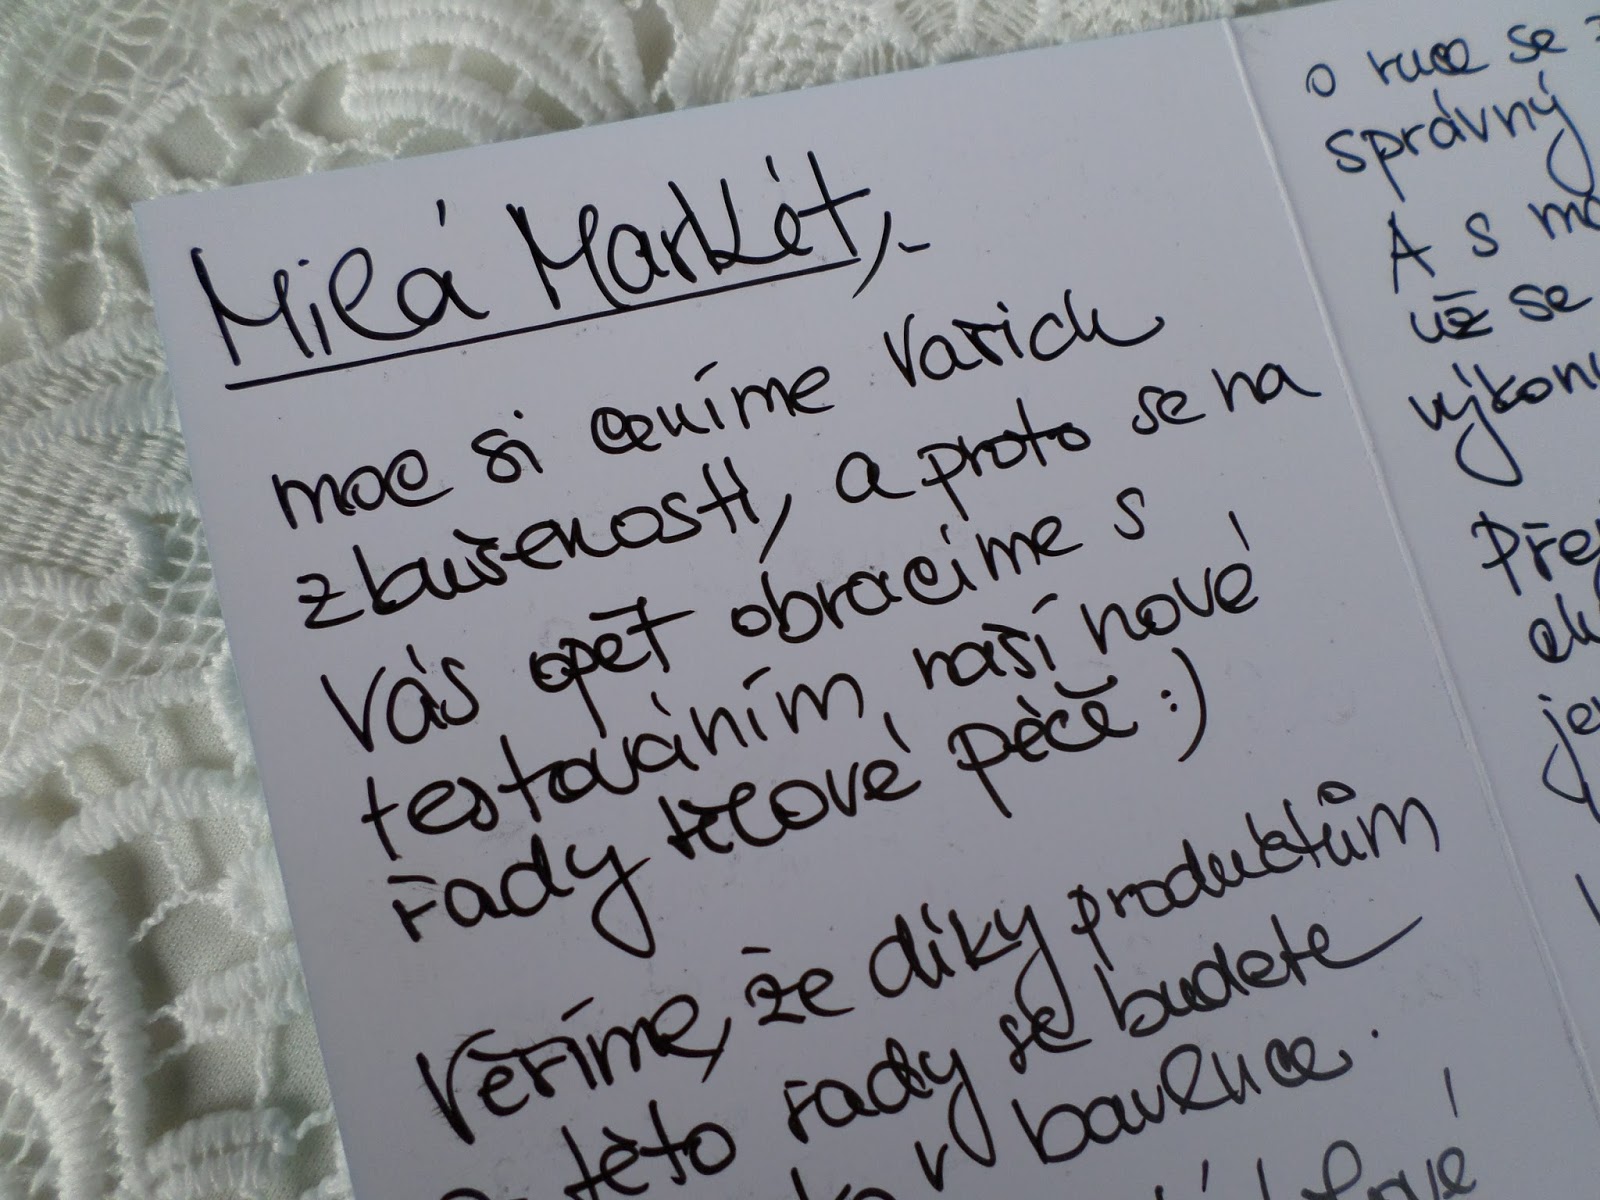 Milá Markét,-
moc si ceníme Vašich
zkušeností, a proto se na
Vás opět obracíme s
testováním naší nové
řady tělové péče :)
Věříme, že díky produktům
této řady se budete
v bavlnce.
o ruce se
správný
A s
už se